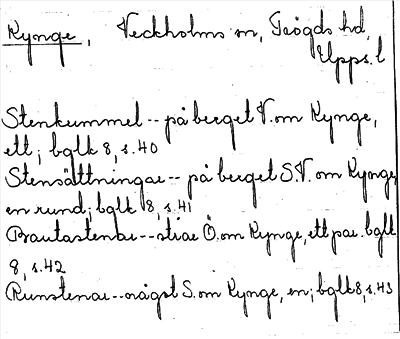 Kynge, Veckholms sn, Trögds hd,
Upps. l
Stenkummel -- på berget V. om Kynge,
ett; bglk 8, s. 40
Stensättningar -- på berget S.V. om Kynge,
en rund; bglk 8, s. 41
Brautastenar -- strax Ö. om Kynge, ett par. bglk
8, s. 42
Runstenar -- något S. om Kynge, en; bglk 8, s. 43